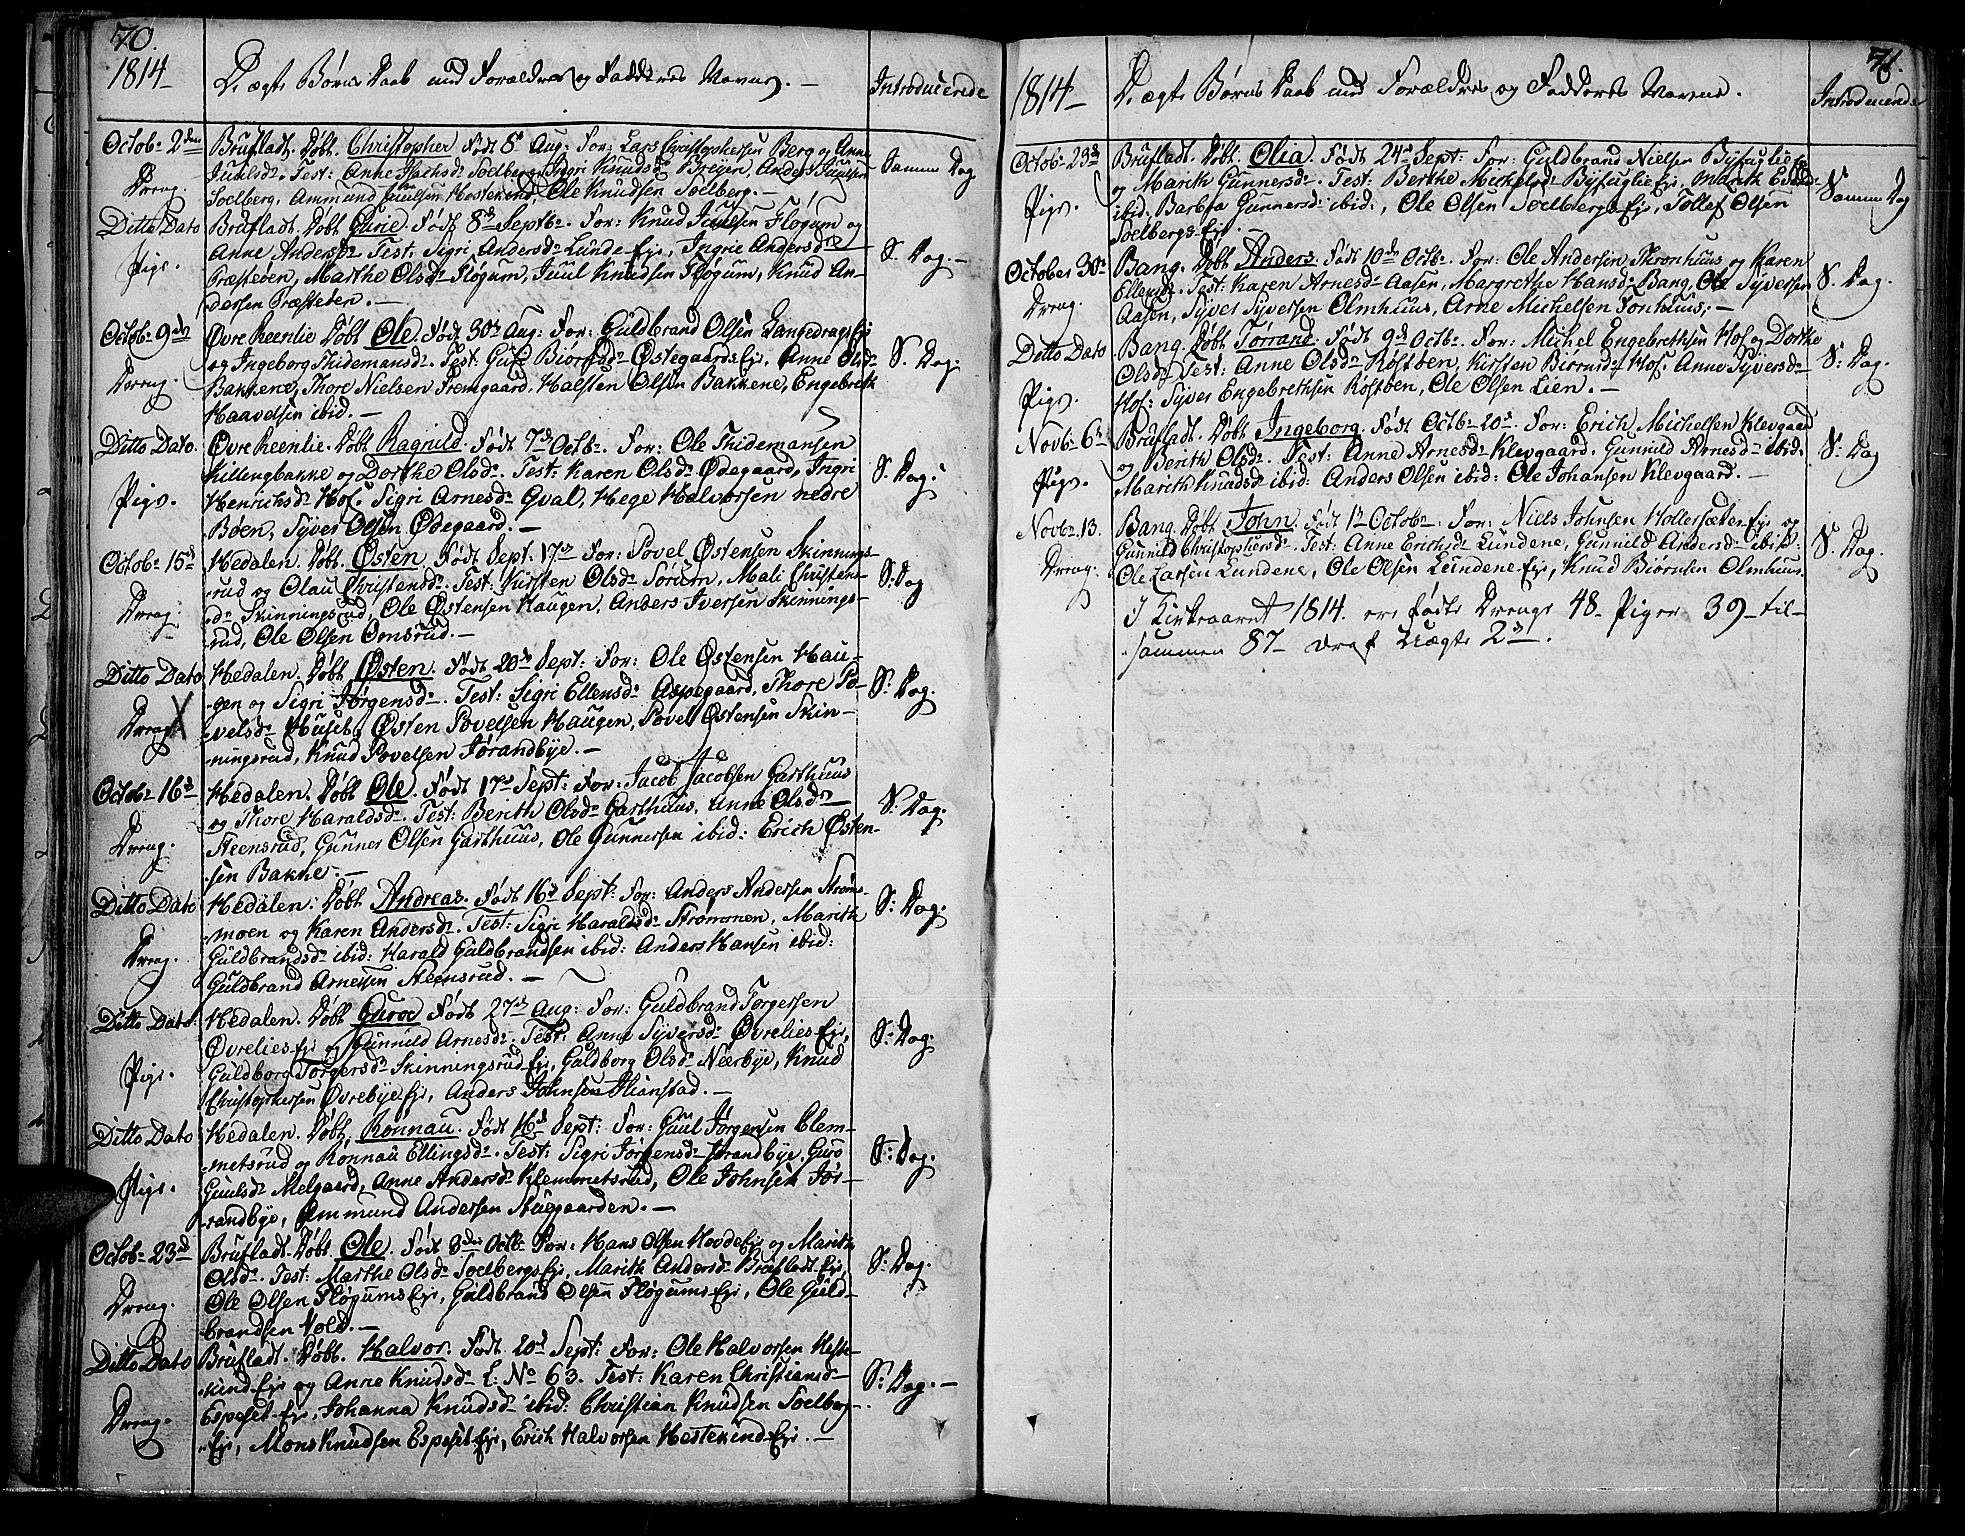 70.
1814
De ægte Børns Daab med Forældres og Fadderes Navne. —
Introducerede
Octobr 2den
Dreng.
Brufladt. Døbt. Christopher født 8de Aug: For: Lars Christophersen Berg og Anne
Juulsdr. Test: Anne Isachsdr Soelberg, Ingri Knudsdr Frøyen, Anders Juulsen
Soelberg, Ammund Juulsen Hestekind, Ole Knudsen Soelberg. —
Samme Dag
Ditto Dato
Pige.
Brufladt. Døbt Gurie. Født 8de Septbr. For: Knud Juulsen Fløgum og
Anne Andersdr Test: Sigri Andersdr Lunde-Eje, Ingrie Andersdr
Præsteten, Marthe Olsdr Fløgum, Juul Knudsen Fløgum, Knud An-
dersen Præsteten. —
S. Dag. —
Octob: 9de
Dreng.
Øvre Reenlie Døbt Ole. Født 30te Aug: For: Guldbrand Olsen LangedragsEje
og Ingeborg Thidemansdr. Test: Guri Biørnsdr ØstegaardsEje, Anne Olsdr
Bakkene, Thore Nielsen Fremgaard, Halsten Olsen Bakkene, Engebreth
Haavelsen ibid. —
S. Dag.
Ditto Dato.
Pige.
Øvre Reenlie. Døbt Ragnild. Født 7de Octbr. For: Ole Thidemansen
Killingbakke og Dorthe Olsdr. Test: Karen Olsdr Ødegaard, Ingri
Henrichsdr Hof, Sigri Arnesdr Gval, Hege Halvorsen nedre
Bøen, Syver Olsen Ødegaard. —
S. Dag.
Octobr 15de
Dreng.
Hedalen. Døbt. Østen. Født Sept: 17de For: Povel Østensen Skinnings-
rud og Olau Christensdr. Test: Kirsten Olsdr Sorum, Mali Christens-
dr Skinningsrud, Ole Østensen Haugen, Anders Iversen Skinnings-
rud, Ole Olsen Omsrud. —
S: Dag
Ditto Dato
Dreng X
Hedalen. Døbt Østen. Født 20de Sept: For: Ole Østensen Hau-
gen og Sigri Jørgensdr. Test: Sigri Ellensdr Aspegaard, Thore Po-
velsdr Huset, Østen Povelsen Haugen, Povel Østensen Skin-
ningsrud, Knud Povelsen Jørandbye. —
S: Dag.
Octobr 16de
Dreng.
Hedalen. Døbt Ole. Født 17de Sept: For: Jacob Jacobsen Garthuus
og Thore Haraldsdr. Test: Berith Olsdr Garthuus, Anne Olsdr
Steensrud, Gunner Olsen Garthuus, Ole Gunnersen ibid: Erich Østen-
sen Bakke. —
S: Dag.
Ditto Dato
Dreng.
Hedalen. Døbt Andreas. Født 16de Sept: For: Anders Andersen Strøms-
moen og Karen Andersdr. Test: Sigri Haraldsdr Strømmen, Marith
Guldbrandsdr ibid: Harald Guldbrandsen ibid: Anders Hansen ibid:
Guldbrand Arnesen Steensrud. —
S: Dag.
Ditto Dato.
Pige.
Hedalen. Døbt Guroe Født 27de Aug: For: Guldbrand Torgersen
Øvrelies-Eje og Gunnild Arnesdr. Test: Anne Syversdr Øvrelies-Eje,
Guldborg Torgersdr Skinningsrud Eje, Guldborg Olsdr Nærbye, Knud
Christophersen ØvrebyeEje, Anders Johnsen Flianstad. —
S: Dag.
Ditto Dato
Pige.
Hedalen. Døbt Ronnau. Født 16de Sept: For: Guul Jørgensen Clem-
metsrud og Ronnau Ellingsdr. Test: Sigri Jørgensdr Jørandbye, Guro
Guulsdr Melgaard, Anne Andersdr Klemmetsrud, Ole Johnsen Jør-
randbye, Ommund Andersen Stuegaarden. —
S: Dag.
Octobr 23de
Dreng.
Brufladt. Døbt. Ole. Født 8de Octbr For: Hans Olsen HovdeEje og Marith
Olsdr. Test: Marthe Olsdr SoelbergsEje, Marith Andersdr BrufladtEje,
Ole Olsen FløgumsEje, Guldbrand Olsen FløgumsEje, Ole Guld-
brandsen Vold. —
S: Dag.
Ditto Dato
Dreng.
Brufladt. Døbt. Halvor. Født 20de Sept: For: Ole Halvorsen Heste-
kind-Eje og Anne Knudsdr L: No 63. Test: Karen Christiansdr
Espeset-Eje, Johanna Knudsdr ibid: Christian Knudsen Soelberg-
Eje, Mons Knudsen Espeset-Eje, Erich Halvorsen Hestekind-Eje. —
S: Dag. —
71.
1814
De ægte Børns Daab med Forældres og Fadderes Navne.
Introducerede
Octobr 23de
Pige.
Brufladt. Døbt. Olia. Født 24de Sept: For: Guldbrand Nielsen ByfuglieEje
og Marith Gunnersdr. Test: Berthe Mickelsdr ByfuglieEje, Marith
ibid: Barbra Gunnersdr ibid:, Ole Olsen SoelbergsEje, Tollef Olsen
SoelbergsEje. —
Samme Dag
October 30te
Dreng.
Bang. Døbt Anders. Født 10de Octbr. For: Ole Andersen Thronhuus og Karen
Ellensdr. Test: Karen Arnesdr Aasen, Margrethe Hansdr Bang, Ole Syversen
Aasen, Syver Syversen Olmhuus, Arne Michelsen Tonhuus; —
S. Dag.
Ditto Dato
Pige.
Bang. Døbt Tørrand. Født 9de Octbr. For: Michel Engebrethsen Hof og Dorthe
Olsdr Test: Anne Olsdr Kostbøn, Kirsten Biørnsdr Hof, Anne Syversdr
Hof: Syver Engebrethsen Kostbøn, Ole Olsen Lien. —
S: Dag.
Novbr 6te
Pige.
Brufladt. Døbt Ingeborg. Født Octbr 20de. For: Erich Michelsen Klevgaard
og Berith Olsdr. Test: Anne Arnesdr Klevgaard, Gunnild Arnesdr ibid:
Marith Knudsdr ibid: Anders Olsen ibid: Ole Johansen Klevgaard. —
S: Dag
Novbr 13.
Dreng.
Bang. Døbt John. Født 1te Octobr: For: Niels Johnsen Hollersæter-Eje og
Gunnild Christophersdr. Test: Anne Erichsdr Lundene, Gunnild Andersdr ibid:
Ole Larsen Lundene, Ole Olsen Lundene-Eje, Knud Biørnsen Olmhuus.
S: Dag.
I Kirkeaaret 1814. ere fødte Drenge 48 Piger 39 til-
sammen 87 deraf Uægte 2de.